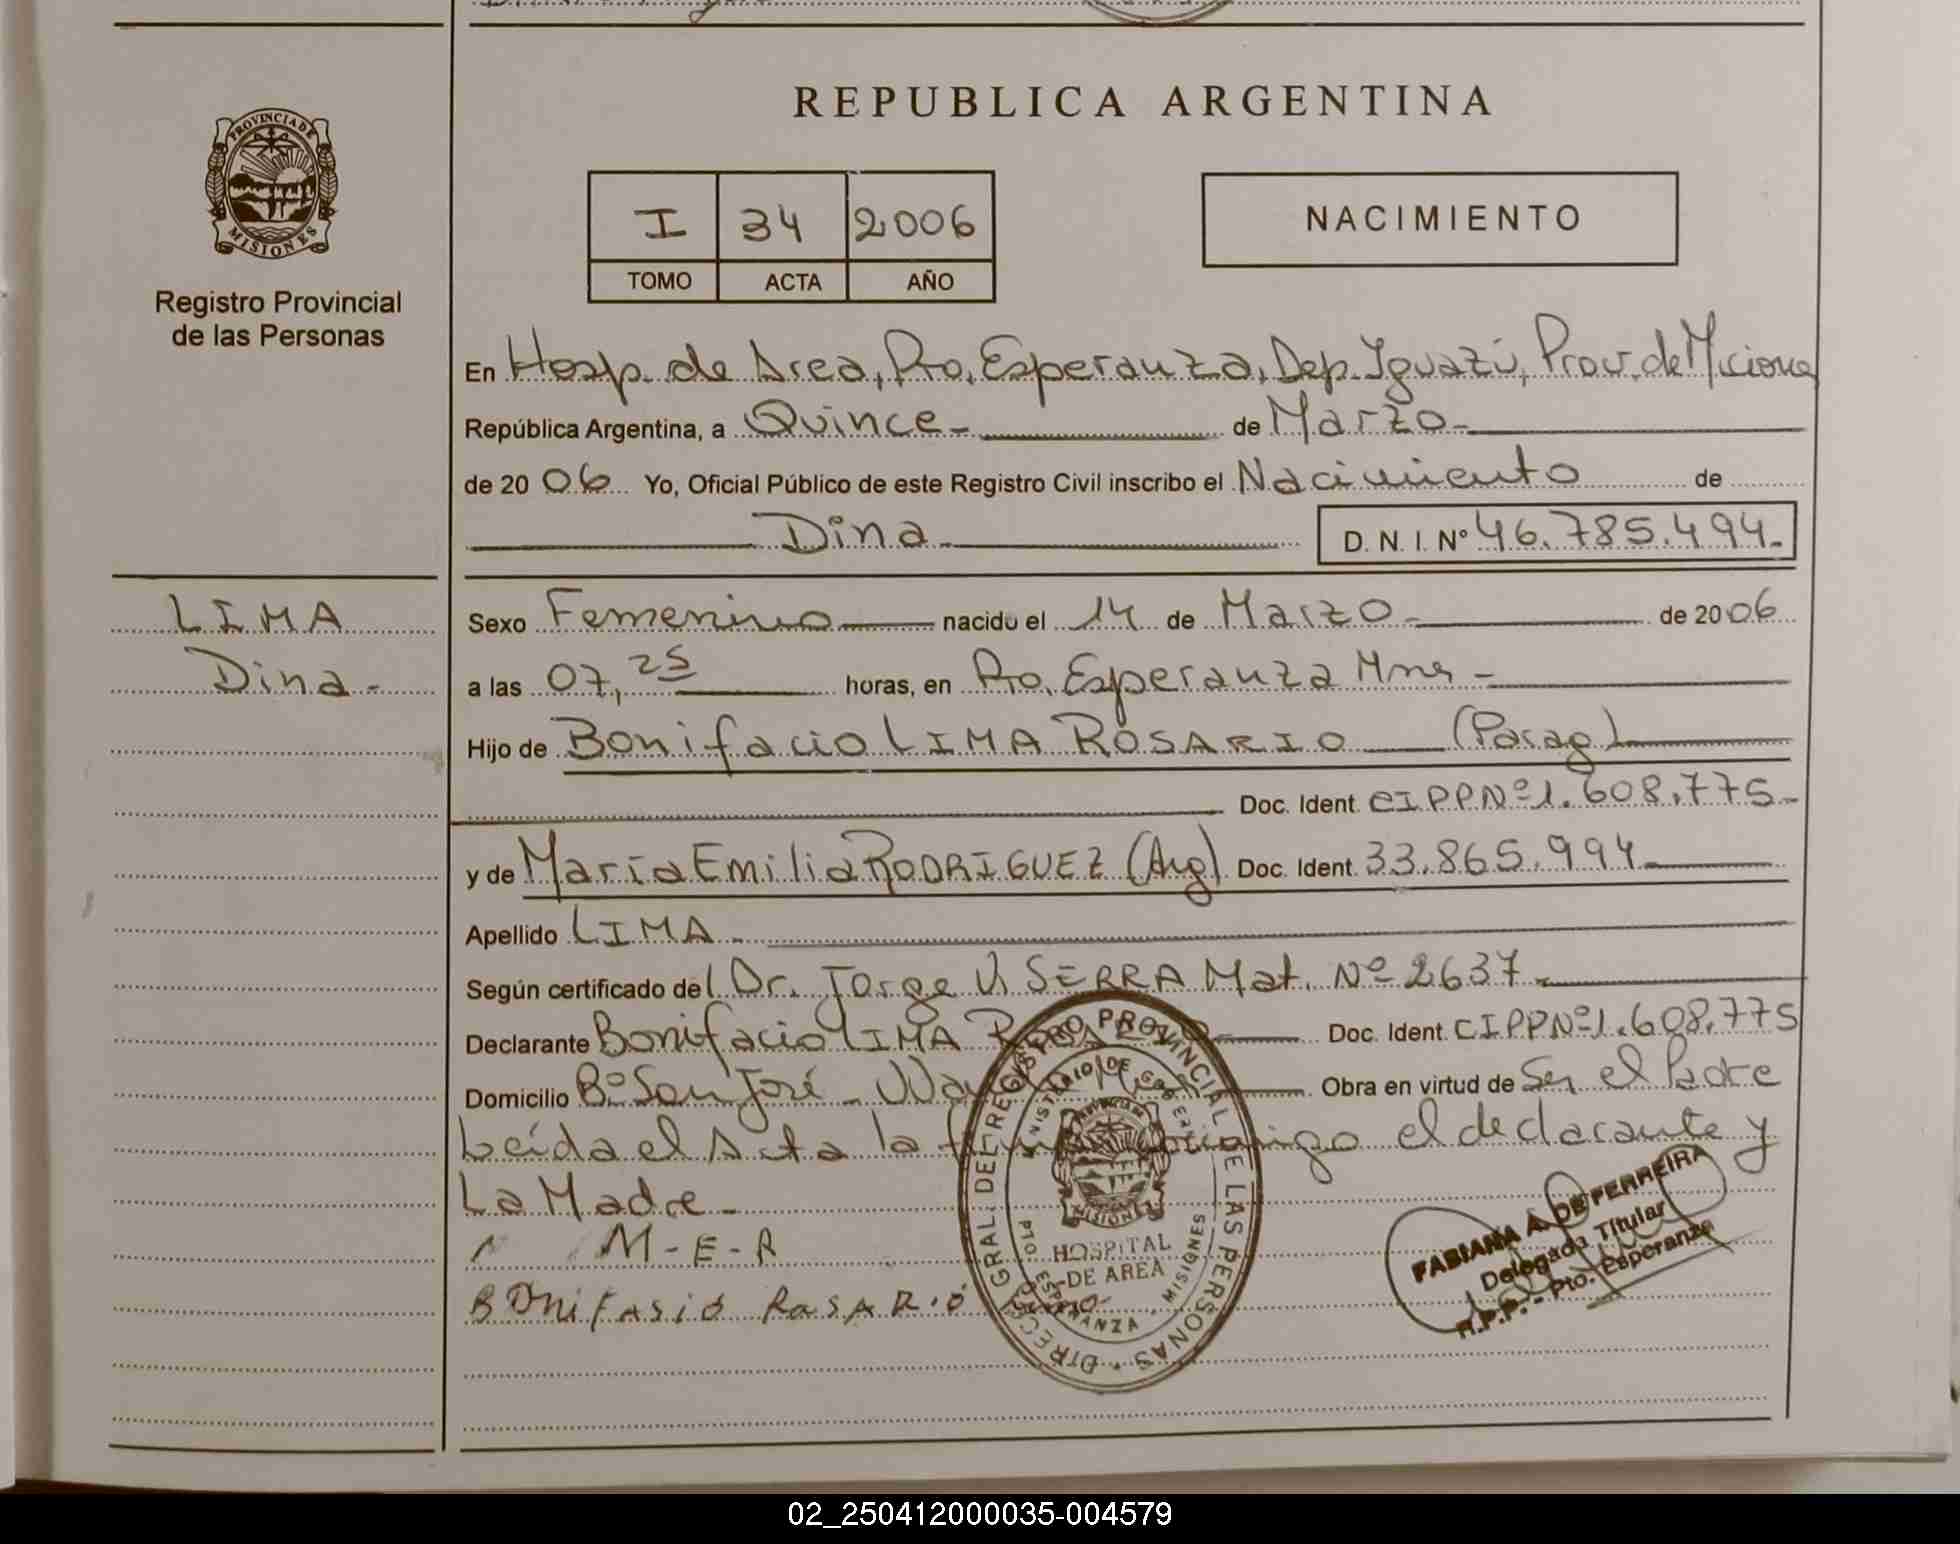 REPUBLICA ARGENTINA
PROVINCIA DE
MISIONES
Registro Provincial
de las Personas
I 34 2006
TOMO ACTA AÑO
NACIMIENTO
En Hosp. de Area, Pto. Esperanza, Dep. Iguazú, Prov. de Misiones
República Argentina, a Quince- de Marzo-
de 20 06 Yo, Oficial Público de este Registro Civil inscribo el Nacimiento de
Dina- D. N. I. Nº 46.785.494.-
LIMA
Dina-
Sexo Femenino nacido el 14 de Marzo- de 20 06
a las 07,25 horas, en Pto. Esperanza Mnes -
Hijo de Bonifacio LIMA ROSARIO (Parag)
Doc. Ident. CIPPNº1.608.775-
y de María Emilia RODRIGUEZ (Arg) Doc. Ident. 33.865.994-
Apellido LIMA -
Según certificado del Dr. Jorge V. SERRA Mat. Nº 2637-
Declarante Bonifacio LIMA Doc. Ident. CIPPNº1.608.775
Domicilio Bº San José - Obra en virtud de Ser el Padre
Leída el Acta la conmigo el declarante y
La Madre-
M-E-R
BONifASió RoSARió
DIRECC. GRAL. DEL REGISTRO PROVINCIAL DE LAS PERSONAS
MINISTERIO DE GOBIERNO
MISIONES
HOSPITAL
DE AREA
PTO. ESPERANZA - MISIONES
FABIANA A. DE FERREIRA
Delegada Titular
R.P.P. - Pto. Esperanza
02_250412000035-004579